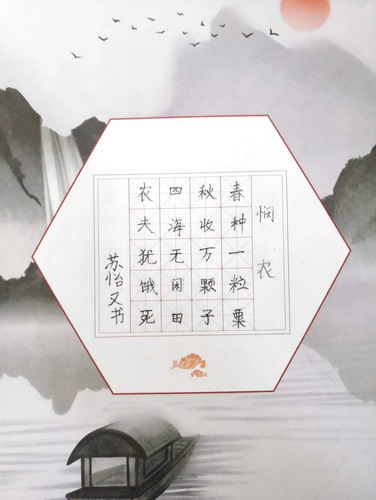 悯农
春种一粒粟
秋收万颗子
四海无闲田
农夫犹饿死
苏怡又书